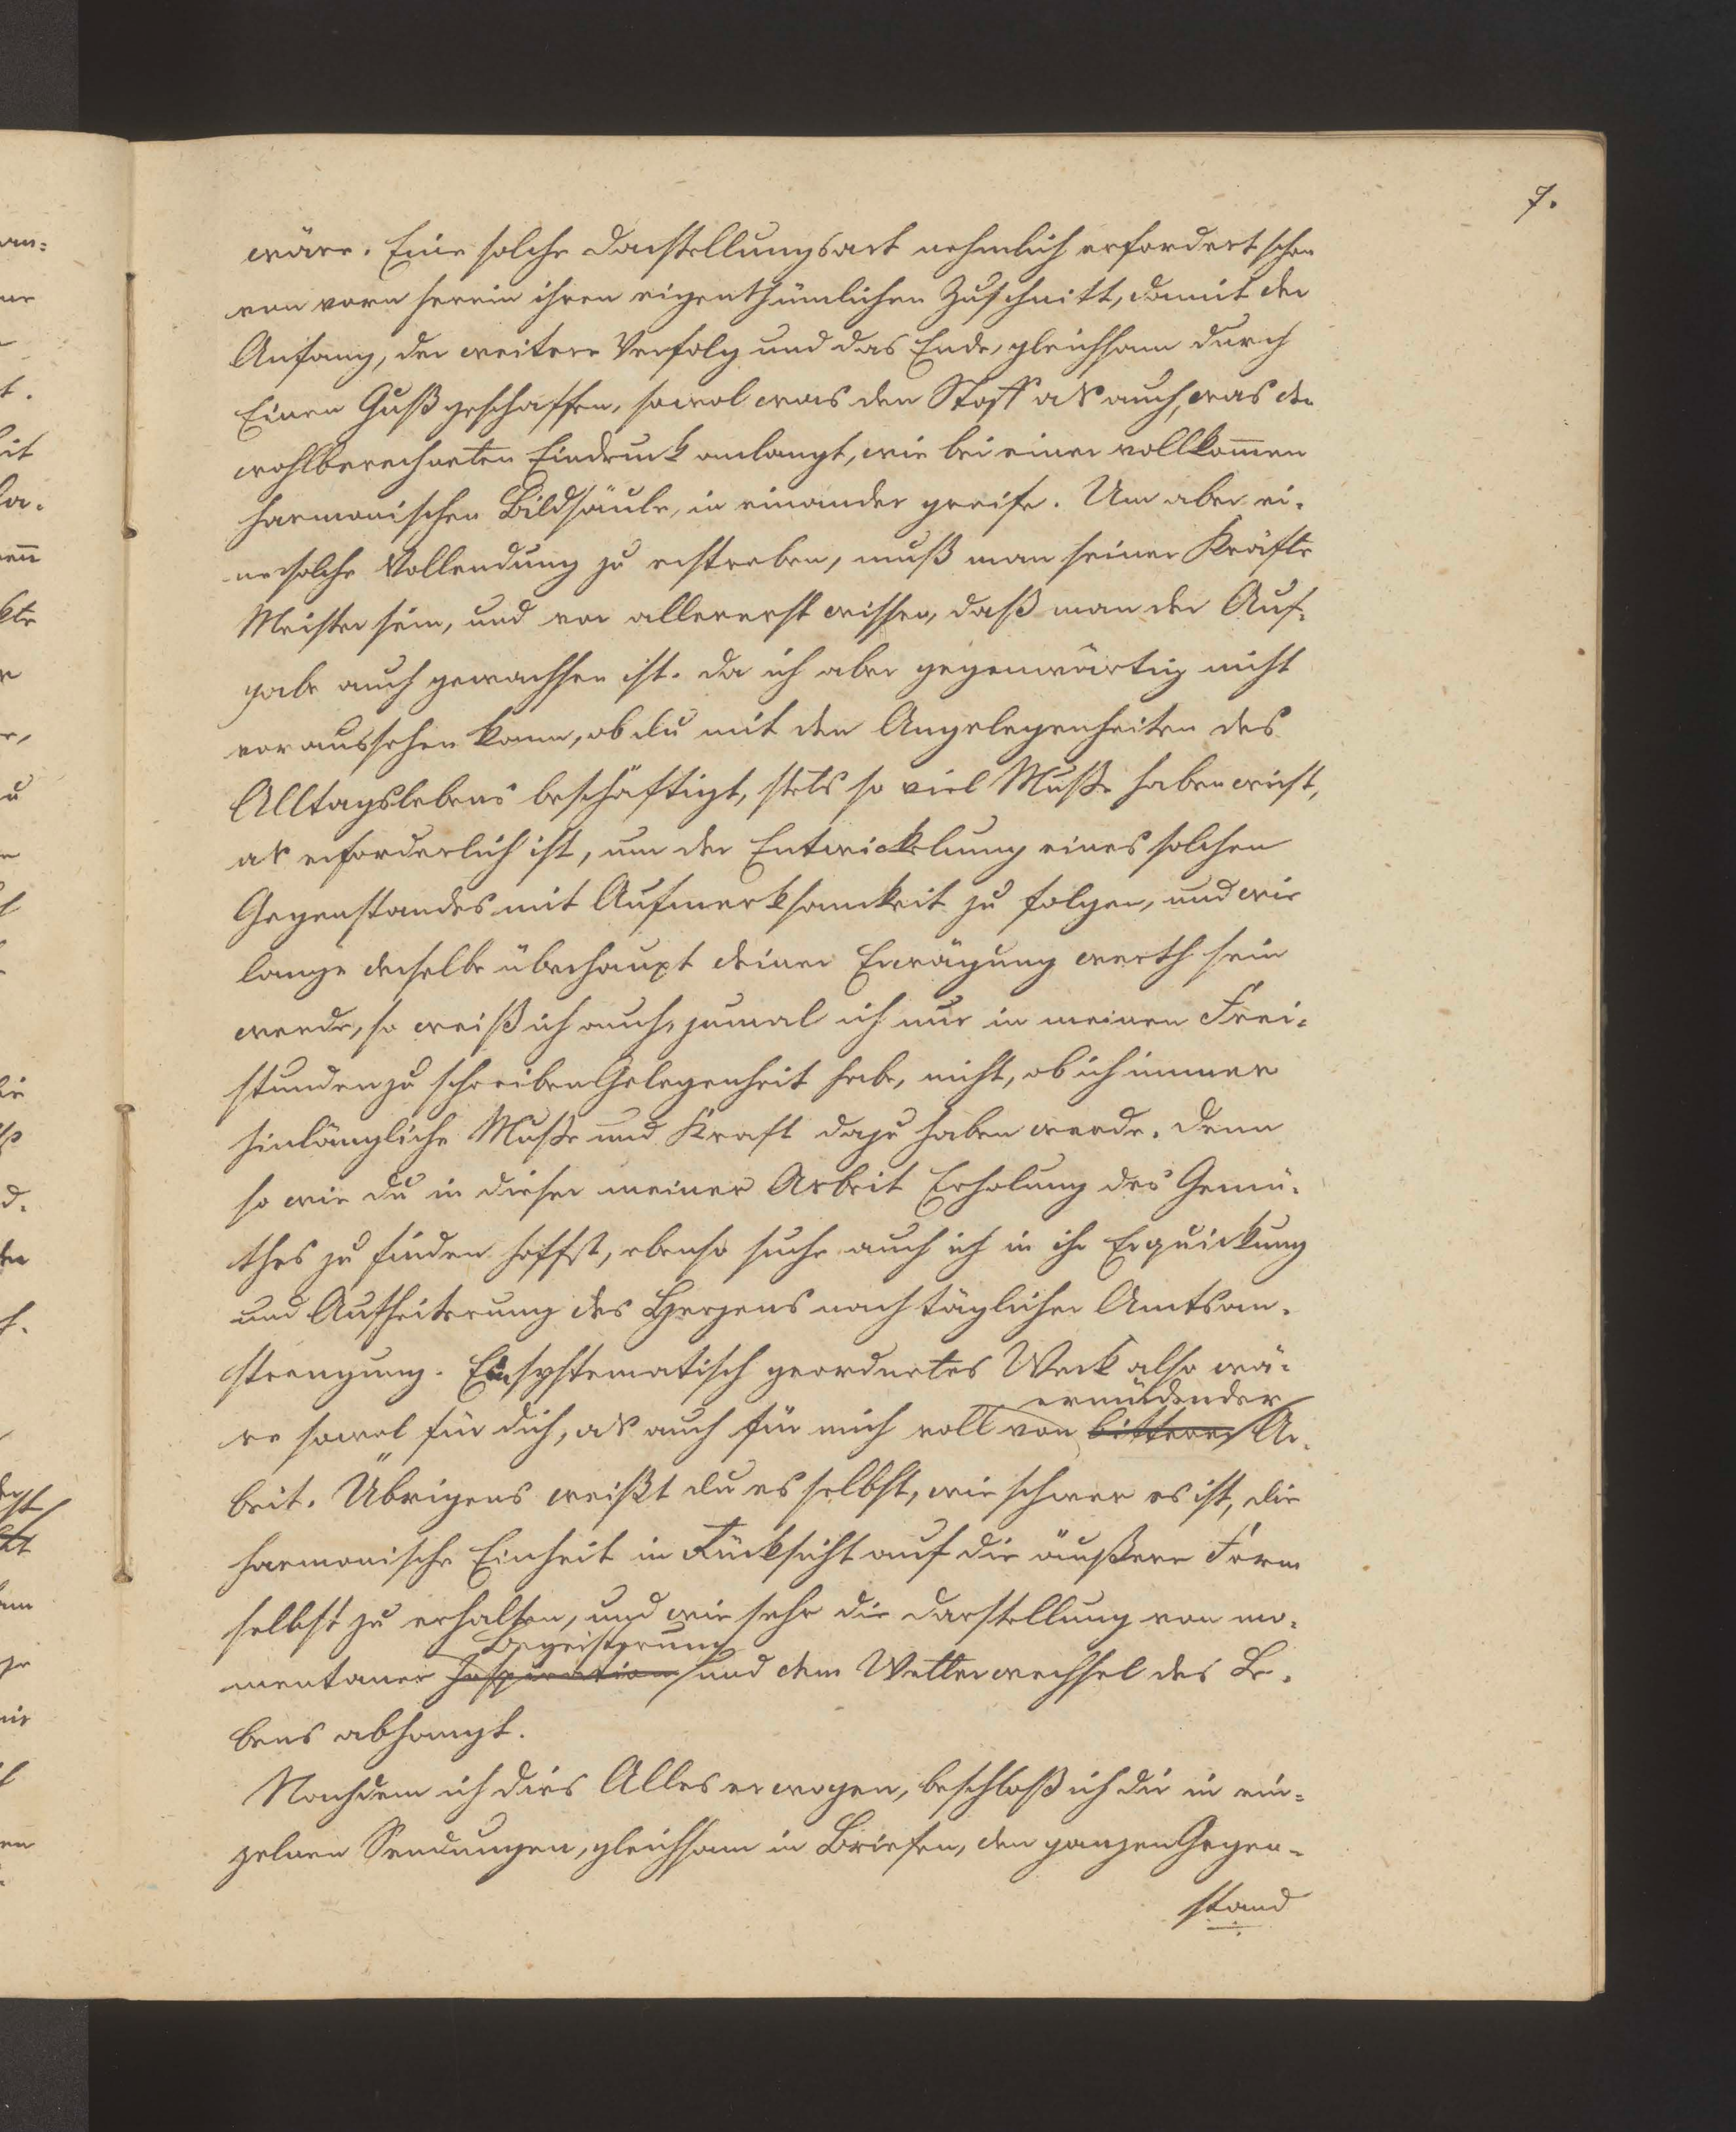 7.
wäre. Eine solche Darstellungsart nehmlich erfordert schon
von vorn herein ihren eigenthümlichen Zuschnitt, damit der
Anfang, der weitere Verfolg und das Ende, gleichsam durch
Einen Guß geschaffen, sowol was den Stoff als auch, was den
wohlberechneten Eindruck anlangt, wie bei einer vollkom̅en
harmonischen Bildsäule, in einander greife. Um aber ei-
ne solche Vollendung zu erstreben, muß man seiner Kräfte
Meister sein, und vor allererst wissen, daß man der Auf-
gabe auch gewachsen ist. Da ich aber gegenwärtig nicht
voraussehen kann, ob du mit den Angelegenheiten des
Alltagslebens beschäftigt, stets so viel Muße haben wirst,
als erforderlich ist, um der Entwickelung eines solchen
Gegenstandes mit Aufmerksamkeit zu folgen, und wie
lange derselbe überhaupt deiner Erwägung werth sein
werde, so weiß ich auch, zumal ich nur in meinen Frei-
stunden zu schreiben Gelegenheit habe, nicht, ob ich immer
hinlängliche Muße und Kraft dazu haben werde. Denn
so wie du in dieser meiner Arbeit Erholung des Gemü-
thes zu finden hoffst, ebenso suche auch ich in ihr Erquickung
und Aufheiterung des Herzens nach täglicher Amtsan-
strengung. Ein systematisch geordnetes Werk also wä-
ermüdender
re sowol für dich, als auch für mich voll von bitterer Ar-
beit. Übrigens weißt du es selbst, wie schwer es ist, die
harmonische Einheit in Rücksicht auf die äußere Form
selbst zu erhalten, und wie sehr die Darstellung von mo-
Begeisterung
mentaner Inspiration und dem Wetterwechsel des Le-
bens abhangt.
Nachdem ich dies Alles erwogen, beschloß ich dir in ein-
zelnen Sendungen, gleichsam in Briefen, den ganzen Gegen-
stand